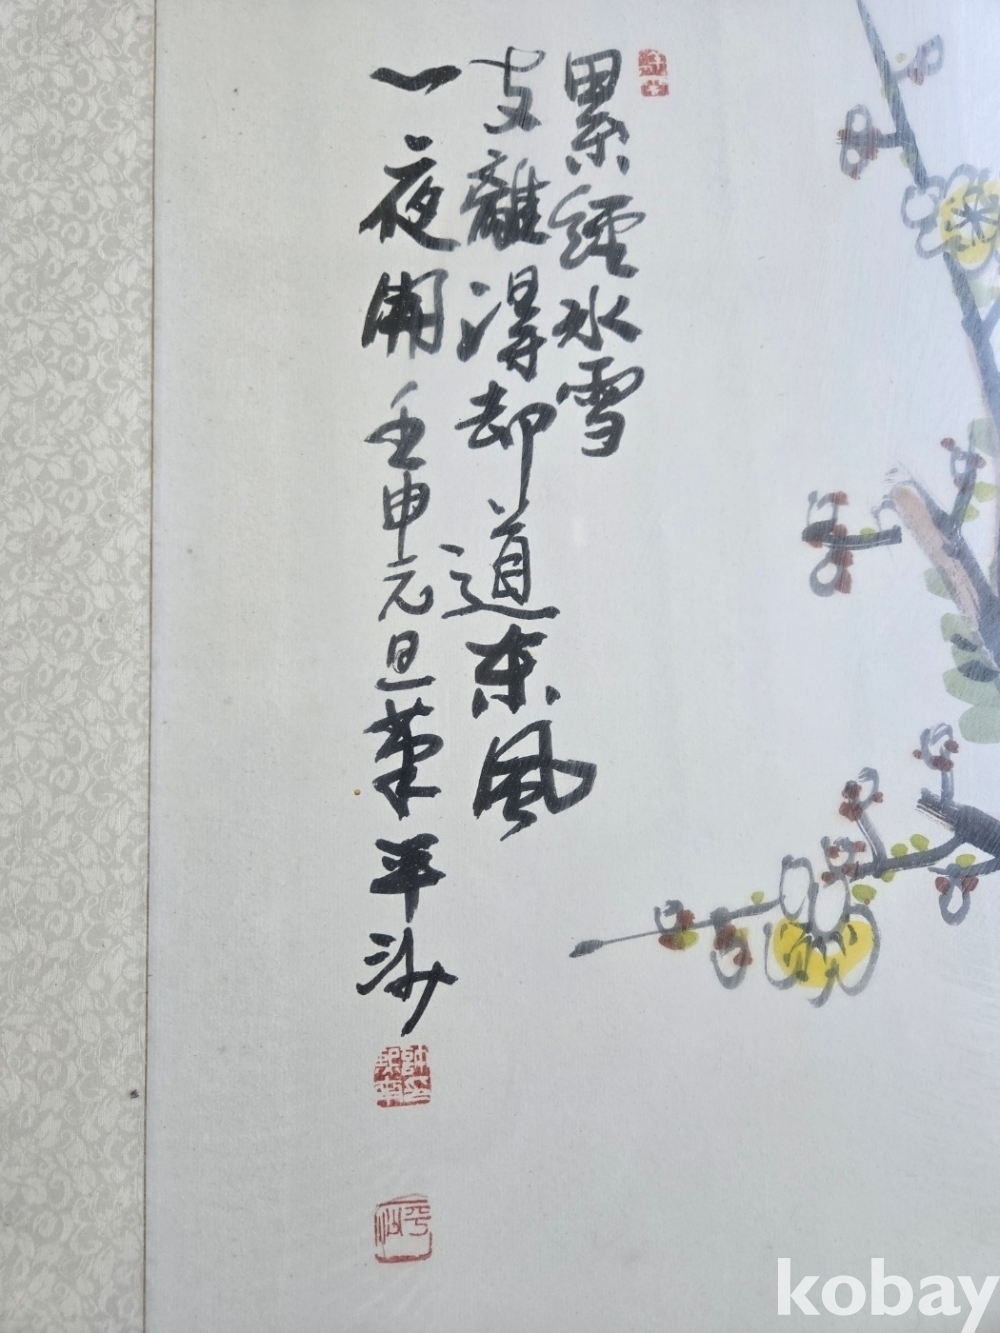 累經氷雪
支離得却道東風
一夜開 壬申元旦 平沙
平沙
kobay